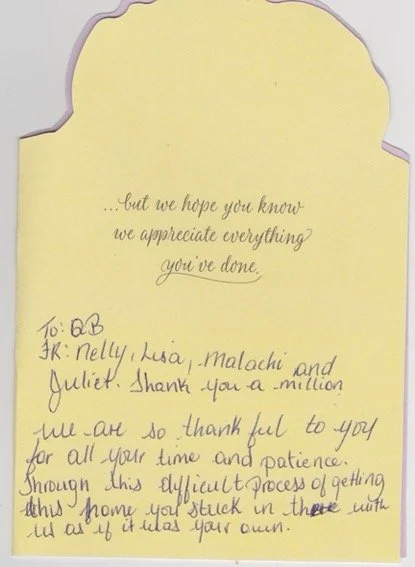 ...but we hope you know
we appreciate everything
you've done.
To: QB
FR: Nelly, Lisa, Malachi and
Juliet. Thank you a million
We are so thankful to you
for all your time and patience.
Through this difficult process of getting
this home you stuck in there with
us as if it was your own.